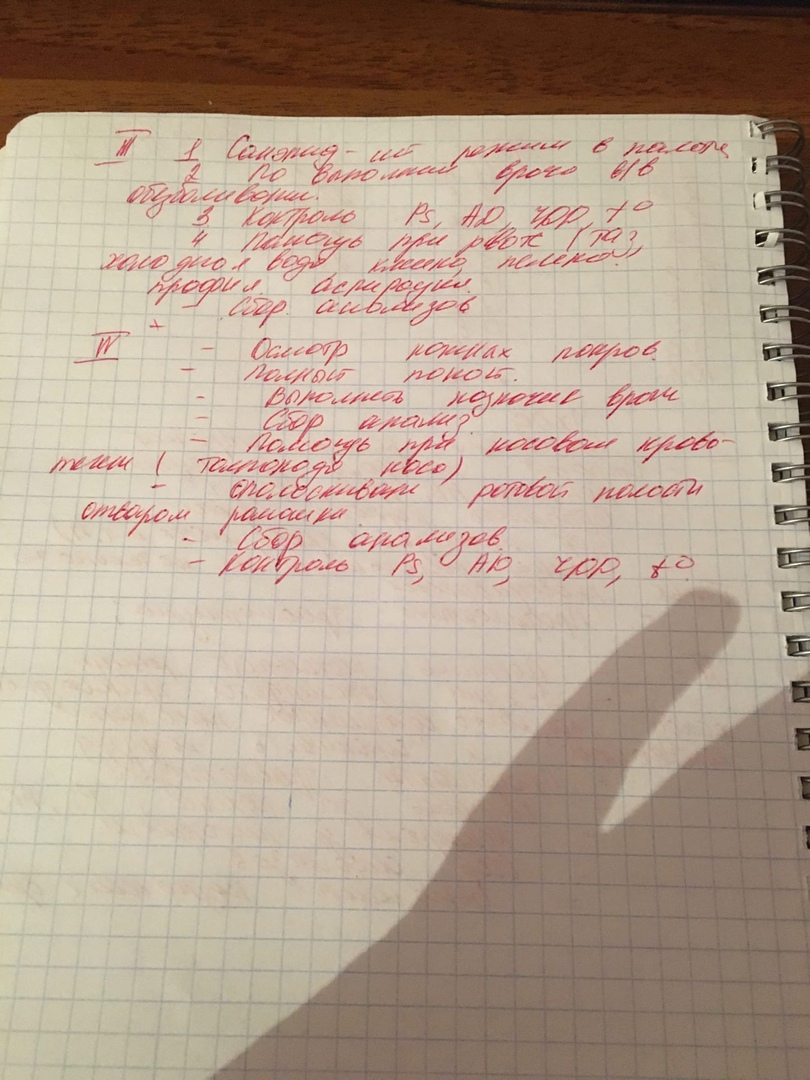 III 1 Санэпид-ий режим в палате
2 По выполнил врача в/в
обезболивани.
3 Контроль Ps, АД, ЧДД, t°
4 Помощь при рвоте (таз,
холодная вода, клеенка, пеленка.
профил. аспирации
- Сбор. анализов
+
IV - Осмотр кожных покров.
- Полный покой.
- Выполнить назначие врач
- Сбор анализ
- Помощь при носовом крово-
течен (тампонада носа)
- ополаскиван ротовой полости
отваром ромашки
- Сбор анализов
- Контроль Ps, АД, ЧДД, t°